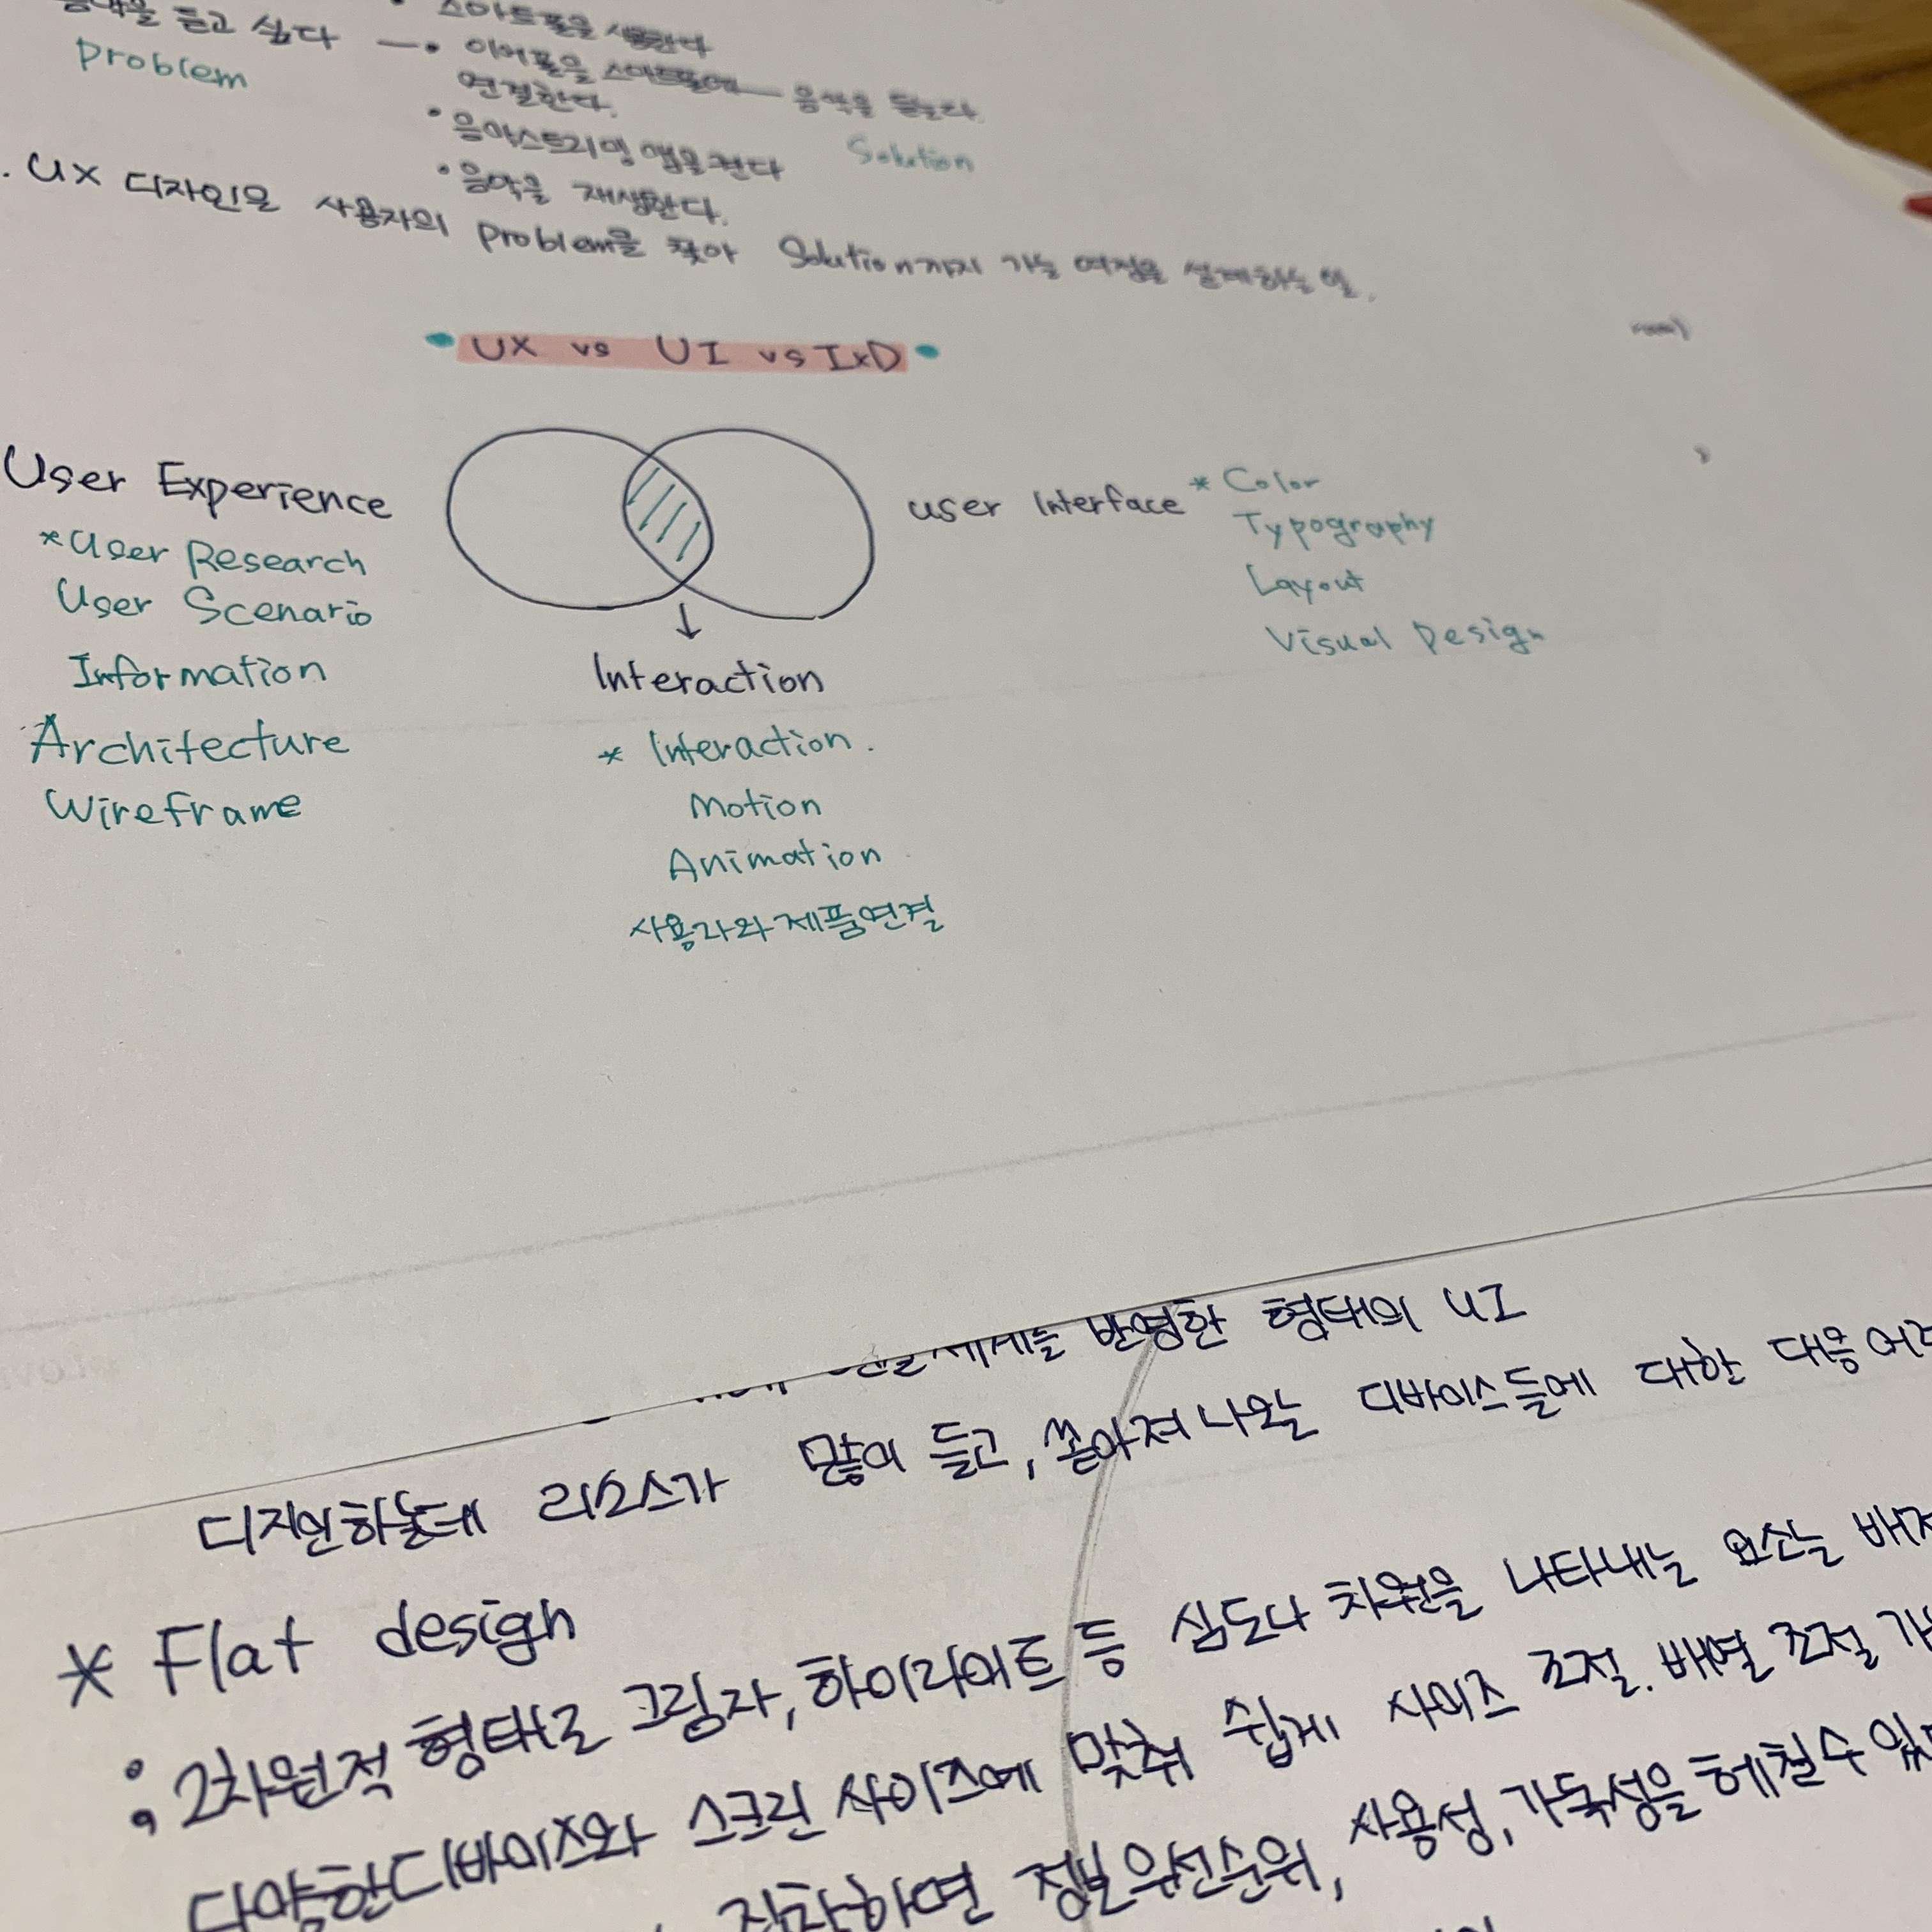 음악을 듣고 싶다 —
Problem
• 스마트폰을 사용한다
• 이어폰을 스마트폰에
연결한다.
• 음악스트리밍 앱을 켠다
• 음악을 재생한다.
음악을 듣는다.
Solution
. UX 디자인은 사용자의 problem을 찾아 Solution까지 가는 여정을 설계하는 일.
• UX vs UI vs IxD •
User Experience
*User Research
User Scenario
Information
Architecture
Wireframe
Interaction
* Interaction.
Motion
Animation
사용자와 제품연결
user Interface
* Color
Typography
Layout
Visual Design
반영한 형태의 UI
디자인하는데 리소스가 많이 들고, 쏟아져나오는 디바이스들에 대한 대응
* Flat design
: 2차원적 형태로 그림자, 하이라이트 등 심도나 차원을 나타내는 요소는
다양한디바이스와 스크린 사이즈에 맞춰 쉽게 사이즈 조절. 배열 조절
하면 정보우선순위, 사용성, 가독성을 헤칠수